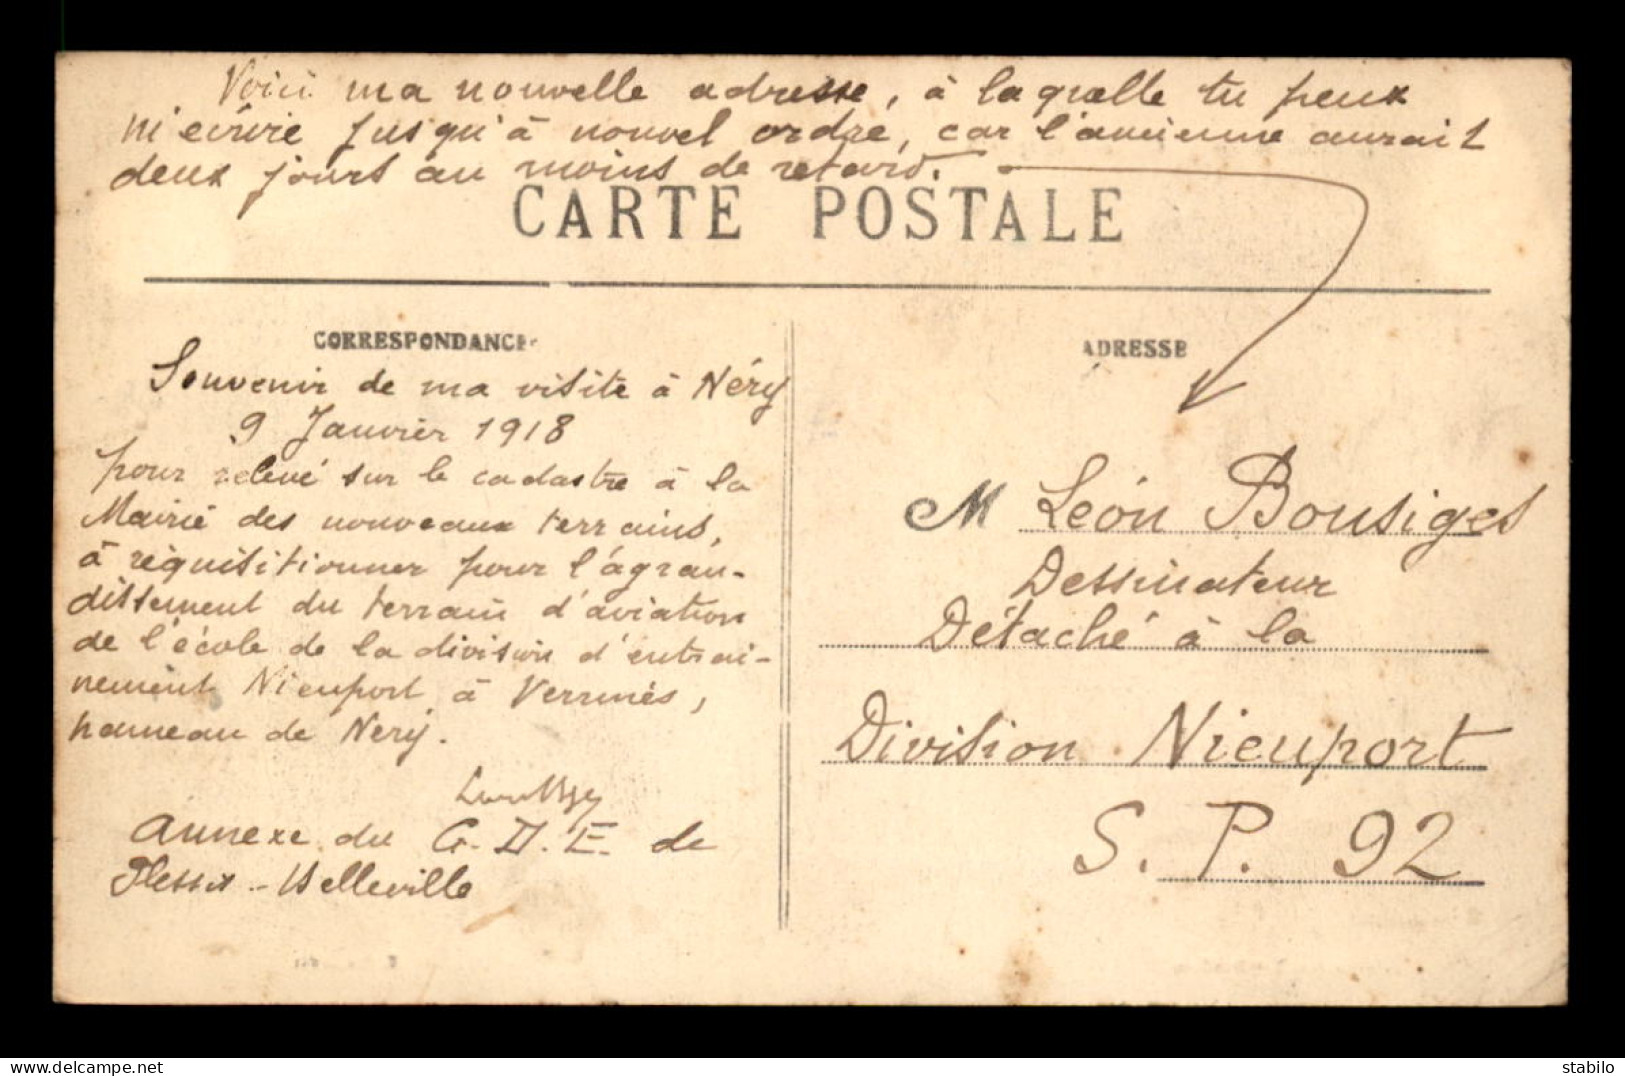 Voici ma nouvelle adresse, à laquelle tu peux
m'écrire jusqu'à nouvel ordre, car l'ancienne aurait
deux jours au moins de retard.
CARTE POSTALE
CORRESPONDANCE
Souvenir de ma visite à Néry
9 Janvier 1918
pour relevé sur le cadastre à la
Mairie des nouveaux terrains,
à réquisitionner pour l'agran-
dissement du terrain d'aviation
de l'école de la division d'entrai-
nement Nieuport à Verrines,
hameau de Nery.
Annexe du G.D.E. de
Plessis-Belleville
ADRESSE
M Léon Bousiges
Dessinateur
Détaché à la
Division Nieuport
S. P. 92
www.delcampe.net
stabilo